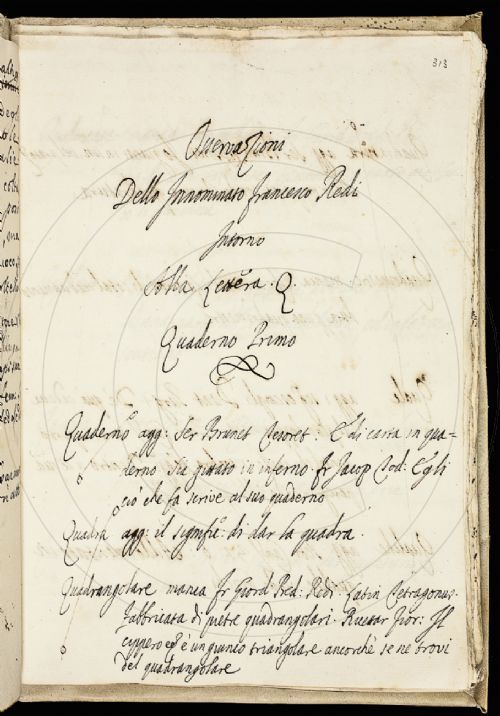 313
Osservazioni
Dello Innominato Francesco Redi
Intorno
Alla Lettera Q.
Quaderno Primo
Quaderno agg: Ser Brunet Tesoret: E di carta in qua=
derno sia gittato in inferno. fr Jacop Tod: Egli
ciò che fa scrive al suo quaderno
Quadra agg: il signific. di dar la quadra.
Quadrangolare manca fr Giord Pred: Redi. Latin Tetragonus.
fabbricata di piete quadrangolari. Ricettar Fior: Il
cippero è un giunco triangolare ancorchè se ne trovi
del quadrangolare